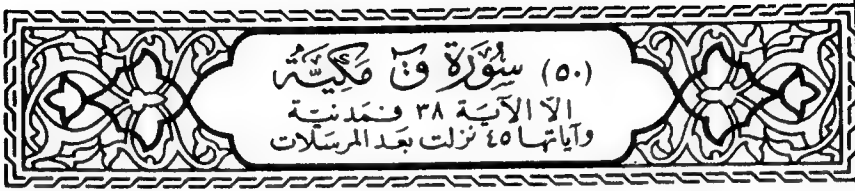 (٥٠) سُورَةُ قٓ مَكِيَّة
الا الآية ٣٨ فمدنية
وآياتها ٤٥ نزلت بعد المرسلات